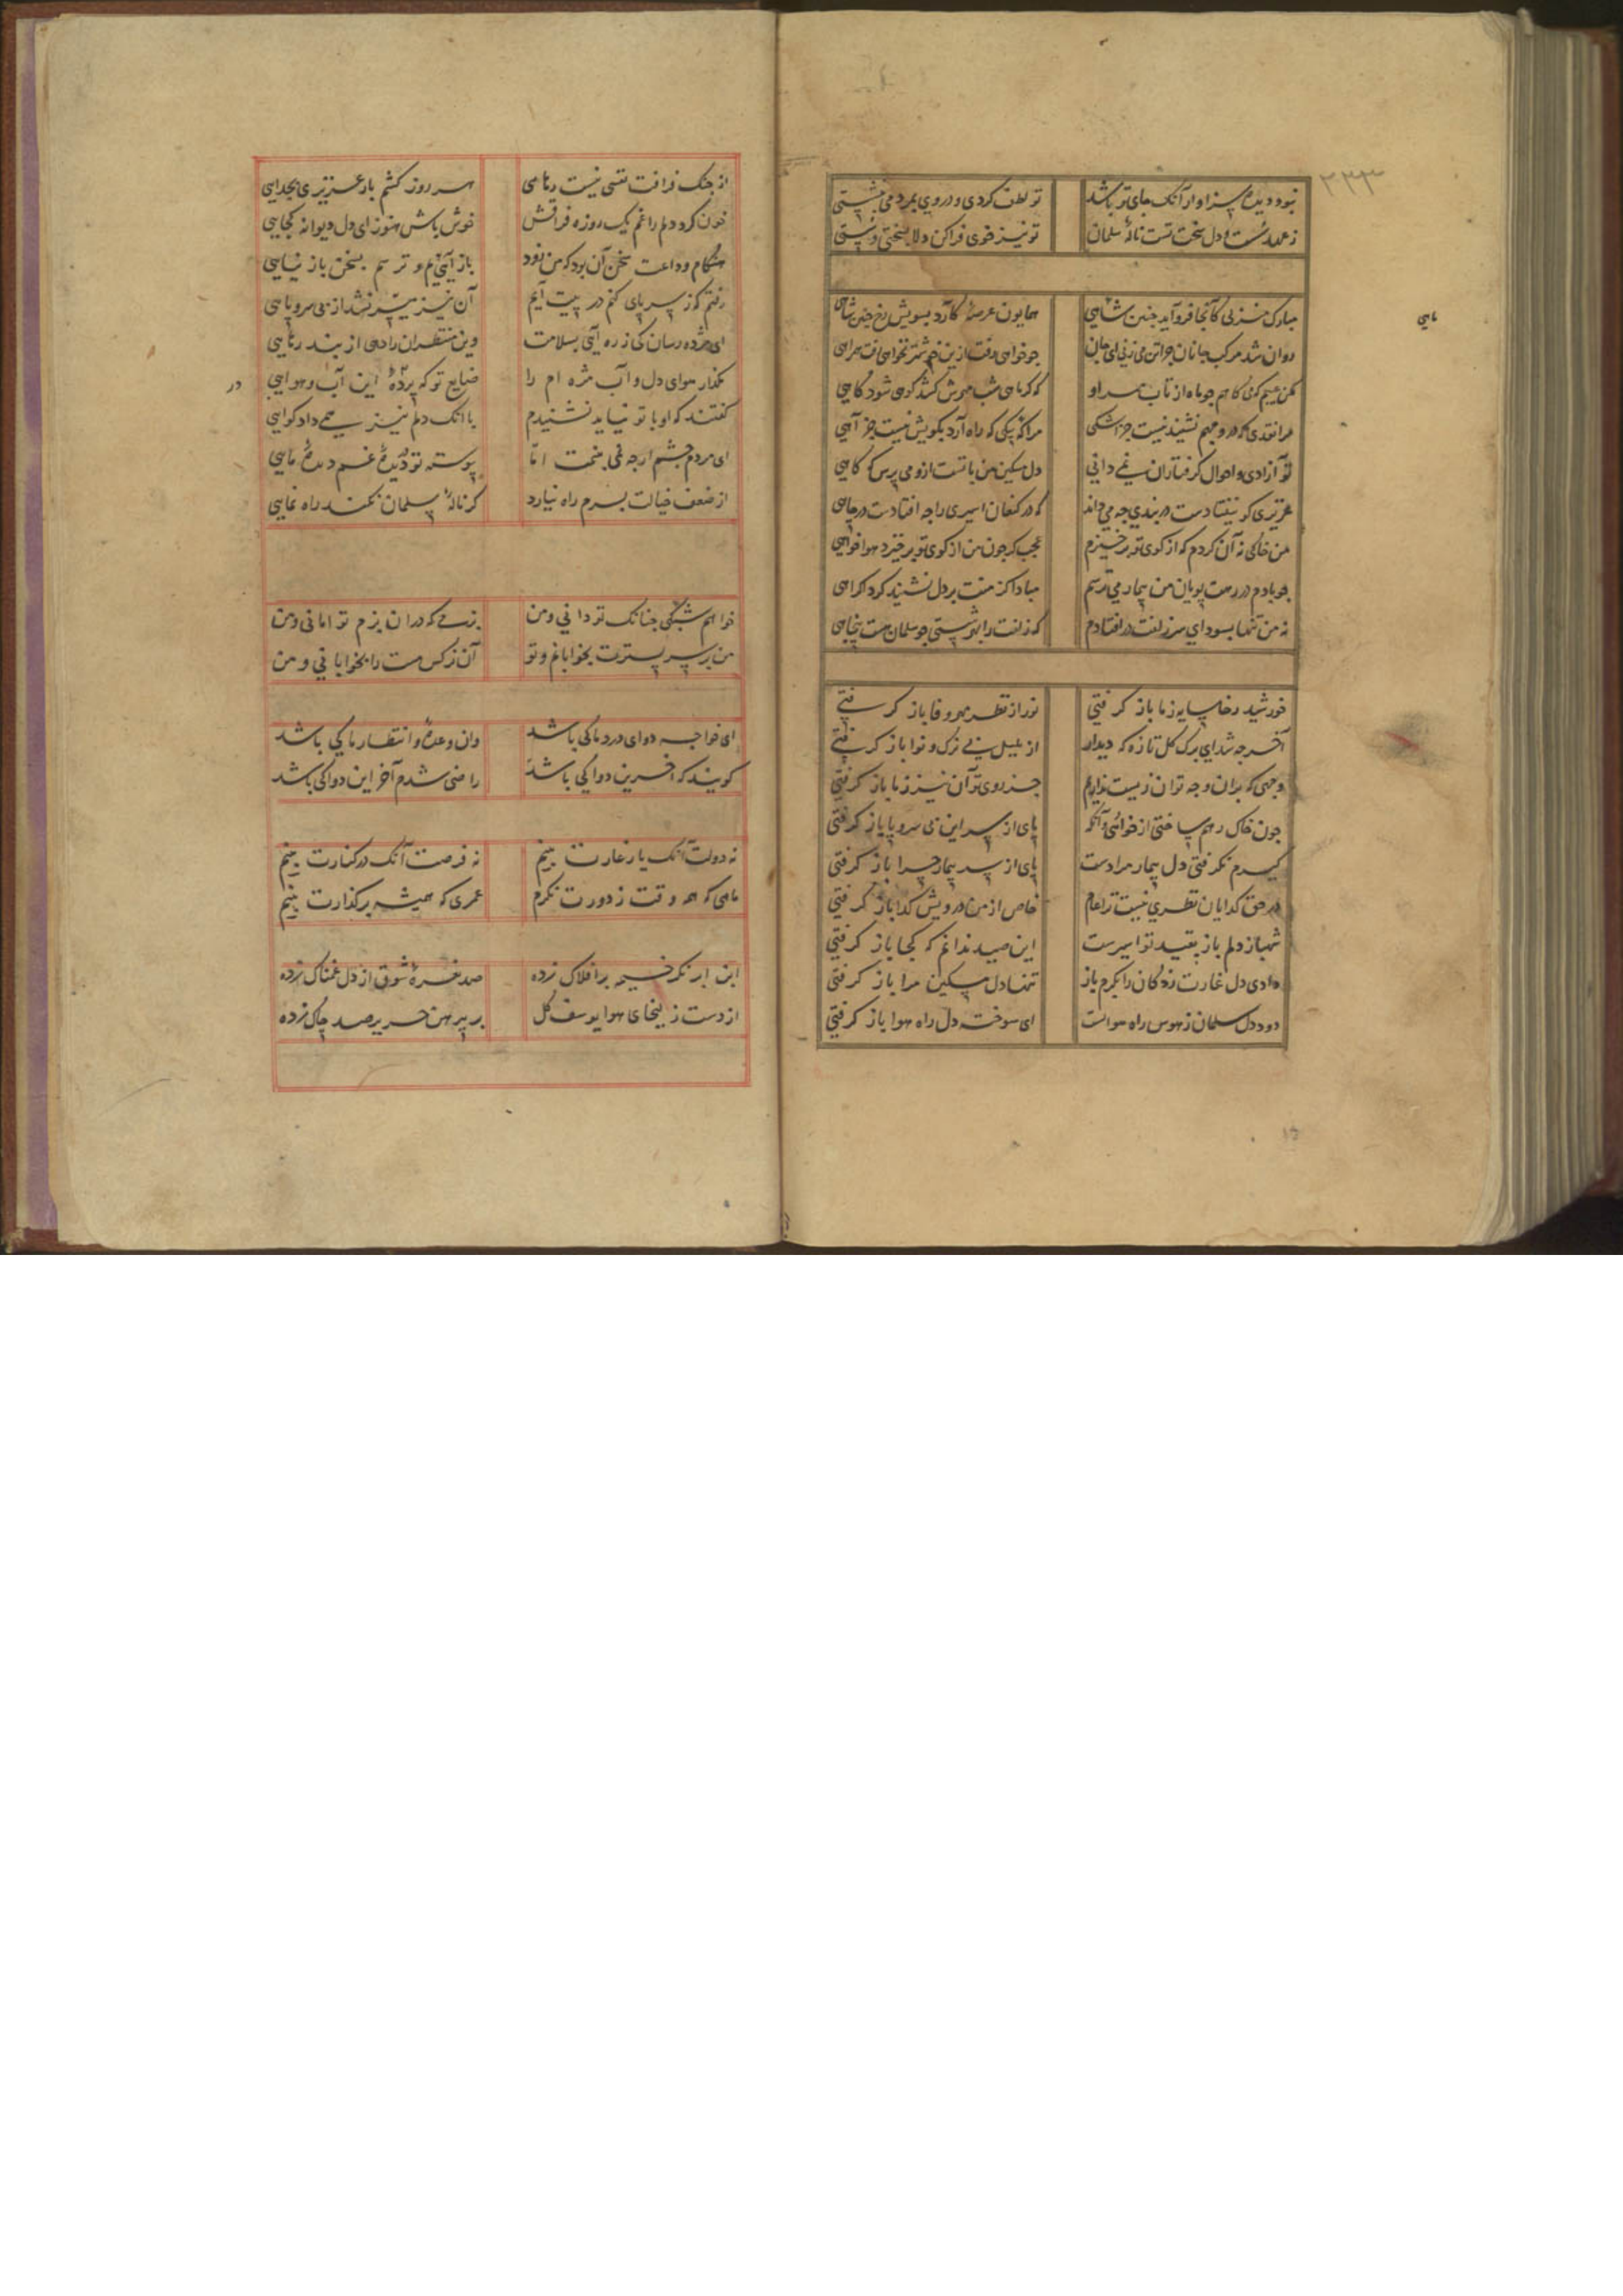 ۲۲۳
نبود دیده سزاوار آنک جای تو باشد تو لطف کردی و در وی بمردمی بنشستی
سلمان تو نیز خوی فراکن دلا بسختی و پستی
مبارک منزلی کآنجا فرود آید چنین شاهی همایون عرصهٔ کآرد بسویش رخ چنین شاهی
ماهی
روان شد مرکب جانان چرا تن می زنی ای جان چو خواهی رفت ازین خوشتر نخواهی یافت همراهی
مکن عیبم کر می کاهم چو ماه از تاب مهر او که کر ماهی شب مهرش کشد کوهی شود کاهی
مرا نقدی که در وجهم نشیند نیست جز اشکی مرا پیکی که راه آرد بکویش نیست جز آهی
تو آزادی و احوال کرفتاران نمی دانی دل مسکین من با تست ازو می پرس که کاهی
عزیزی کو نیفتادست در بندی چه می داند که در کنعان اسیری را چه افتادست در چاهی
من خاکی نه آن کردم که از کوی تو برخیزم عجب کر چون من از کوی تو برخیزد هواخواهی
چو بادم در رهت پویان من بیمار می ترسم مبادا کز منت بر دل نشیند کرد اکراهی
نه من تنها بسودای سر زلفت در افتادم که زلفت را بهر شستی چو سلمان هست پنجاهی
خورشید رخا سایه ز ما باز کرفتی نور از نظر مهر و وفا باز کرفتی
آخر چه شد ای برک کل تازه که دیدار از بلبل بی برک و نوا باز کرفتی
وجهی که بدان وجه توان زیست نداریم جز روی تو آن نیز ز ما باز کرفتی
چون خاک رهم ساختی از خواری و آنکه پای از سر این بی سر و پا باز کرفتی
کیرم نکرفتی دل بیمار مرا دست پای از سر بیمار چرا باز کرفتی
در حق کدایان نظری نیست ترا عام خاص از من درویش کدا باز کرفتی
شهباز دلم باز بقید تو اسیرست این صید ندانم که کجا باز کرفتی
دادی دل غارت زدکان را بکرم باز تنها دل مسکین مرا باز کرفتی
دود دل سلمان ز هوس راه هوا بست ای سوخته دل راه هوا باز کرفتی
از جنک فراقت نفسی نیست رهایی هر روز کشم بار عزیزی بجدایی
خون کرد دلم را غم یک روزه فراقش خوش باش هنوز ای دل دیوانه کجایی
هنکام وداعت سخن آن بود که من زود باز آیم و ترسم بسخن باز نیایی
رفتم که ز سر پای کنم در پیت آیم آن نیز میسر نشد از بی سر و پایی
ای مژده رسان کی ز ره آیی بسلامت وین منتظران را دهی از بند رهایی
بکذار هوای دل و آب مژه ام را ضایع تو که پروردهٔ این آب و هوایی
در
کفتند که او با تو نیاید نشنیدم با آنک دلم نیز همی داد کوایی
ای مردم چشم ار چه غمی نیست اما پیوسته تو در دیدهٔ غم دیدهٔ مایی
از ضعف خیالت بسرم راه نیارد کر نالهٔ سلمان نکند راه نمایی
خواهم شبکی چنانک تو دانی و من بزمی که در ان بزم تو امانی و من
من بر سر بسترت بخوابانم و تو آن نرکس مست را بخوابانی و من
ای خواجه دوای درد ما کی باشد وان وعده و انتظار ما کی باشد
کویند که آخرین دوا کی باشد راضی شدم آخر این دوا کی باشد
نه دولت آنک یار غارت بینم نه فرصت آنک در کنارت بینم
ماهی که هر وقت ز دورت نکرم عمری که همیشه بر کذارت بینم
این ابر نکر خیمه بر افلاک زده صد نعرهٔ شوق از دل غمناک زده
از دست زلیخای هوا یوسف کل بر پیرهن حریر صد چاک زده